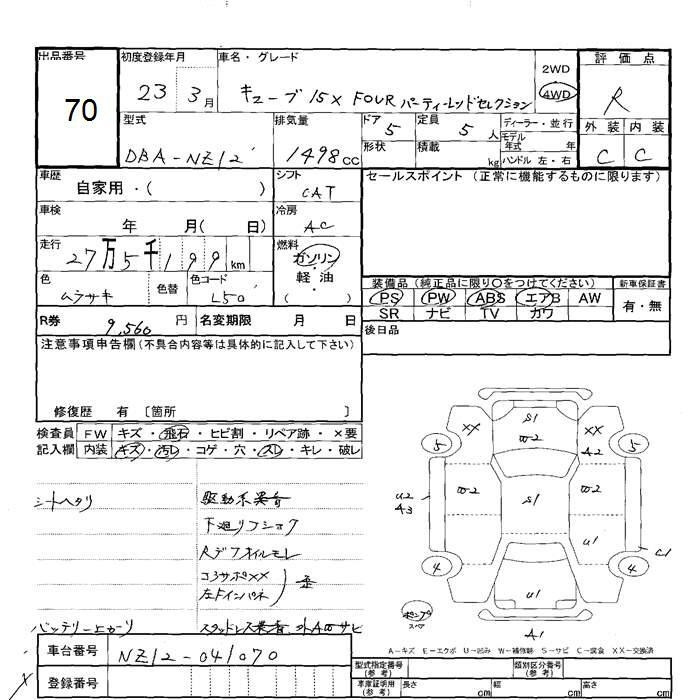 出品番号
70
初度登録年月
23 3月
車名・グレード
キューブ 15X FOUR パーティーレッドセレクション
2WD
4WD
評価点
R
外装 内装
C C
型式
DBA-NZ12
排気量
1498cc
ドア 5
定員 5人
形状
積載 kg
ディーラー・並行
モデル年式 年
ハンドル 左・右
車歴
自家用・( )
シフト
CAT
セールスポイント(正常に機能するものに限ります)
車検
年 月( 日)
冷房
AC
走行
27万5千199km
燃料
ガソリン・軽油
( )
色
ムラサキ
色替
色コード
L50
装備品(純正品に限り〇をつけてください)
PS PW ABS エアB AW
SR ナビ TV カワ
新車保証書
有・無
R券 9,560円
名変期限 月 日
後日品
注意事項申告欄(不具合内容等は具体的に記入して下さい)
修復歴 有 〔箇所 〕
検査員記入欄
FW キズ・飛石・ヒビ割・リペア跡・×要
内装 キズ・汚レ・コゲ・穴・スレ・キレ・破レ
シートヘタリ
駆動系異音
下廻りフショク
Rデフオイルモレ
コアサポXX
左Fインパネ
歪
バッテリー上がり
スタッドレス
車台番号
NZ12-041070
登録番号
S1
XX
W2
XX
A2
5
5
U2
A3
W2
S1
W2
U1
C1
4
4
U1
A1
ポンプ
スペア
A-キズ E-エクボ U-凹み W-補修跡 S-サビ C-腐食 XX-交換済
型式指定番号(参考)
類別区分番号(参考)
車庫証明用(参考)
長さ cm
幅 cm
高さ cm